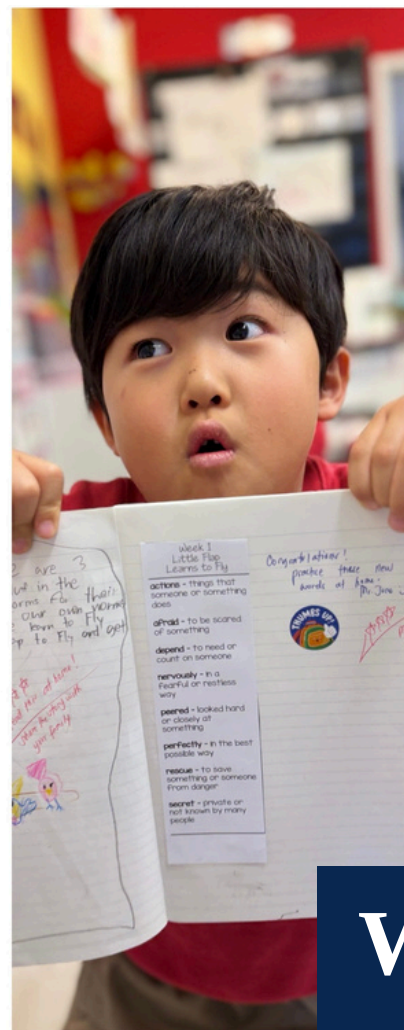 are 3
in the
for their
our own
learn to Fly
to Fly and get
this at home!
share the story with
your family
Week 1
Little Flap
Learns to Fly
actions - things that
someone or something
does
afraid - to be scared
of something
depend - to need or
count on someone
nervously - in a
fearful or restless
way
peered - looked hard
or closely at
something
perfectly - in the best
possible way
rescue - to save
something or someone
from danger
secret - private or
not known by many
people
Congratulations!
practice these new
words at home.
THUMBS UP!